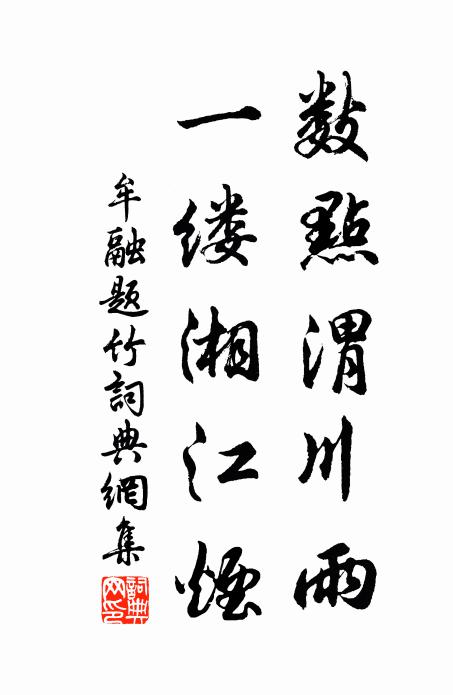 数點渭川雨
一缕湘江煙
牟融题竹詞典網集
詞典網印